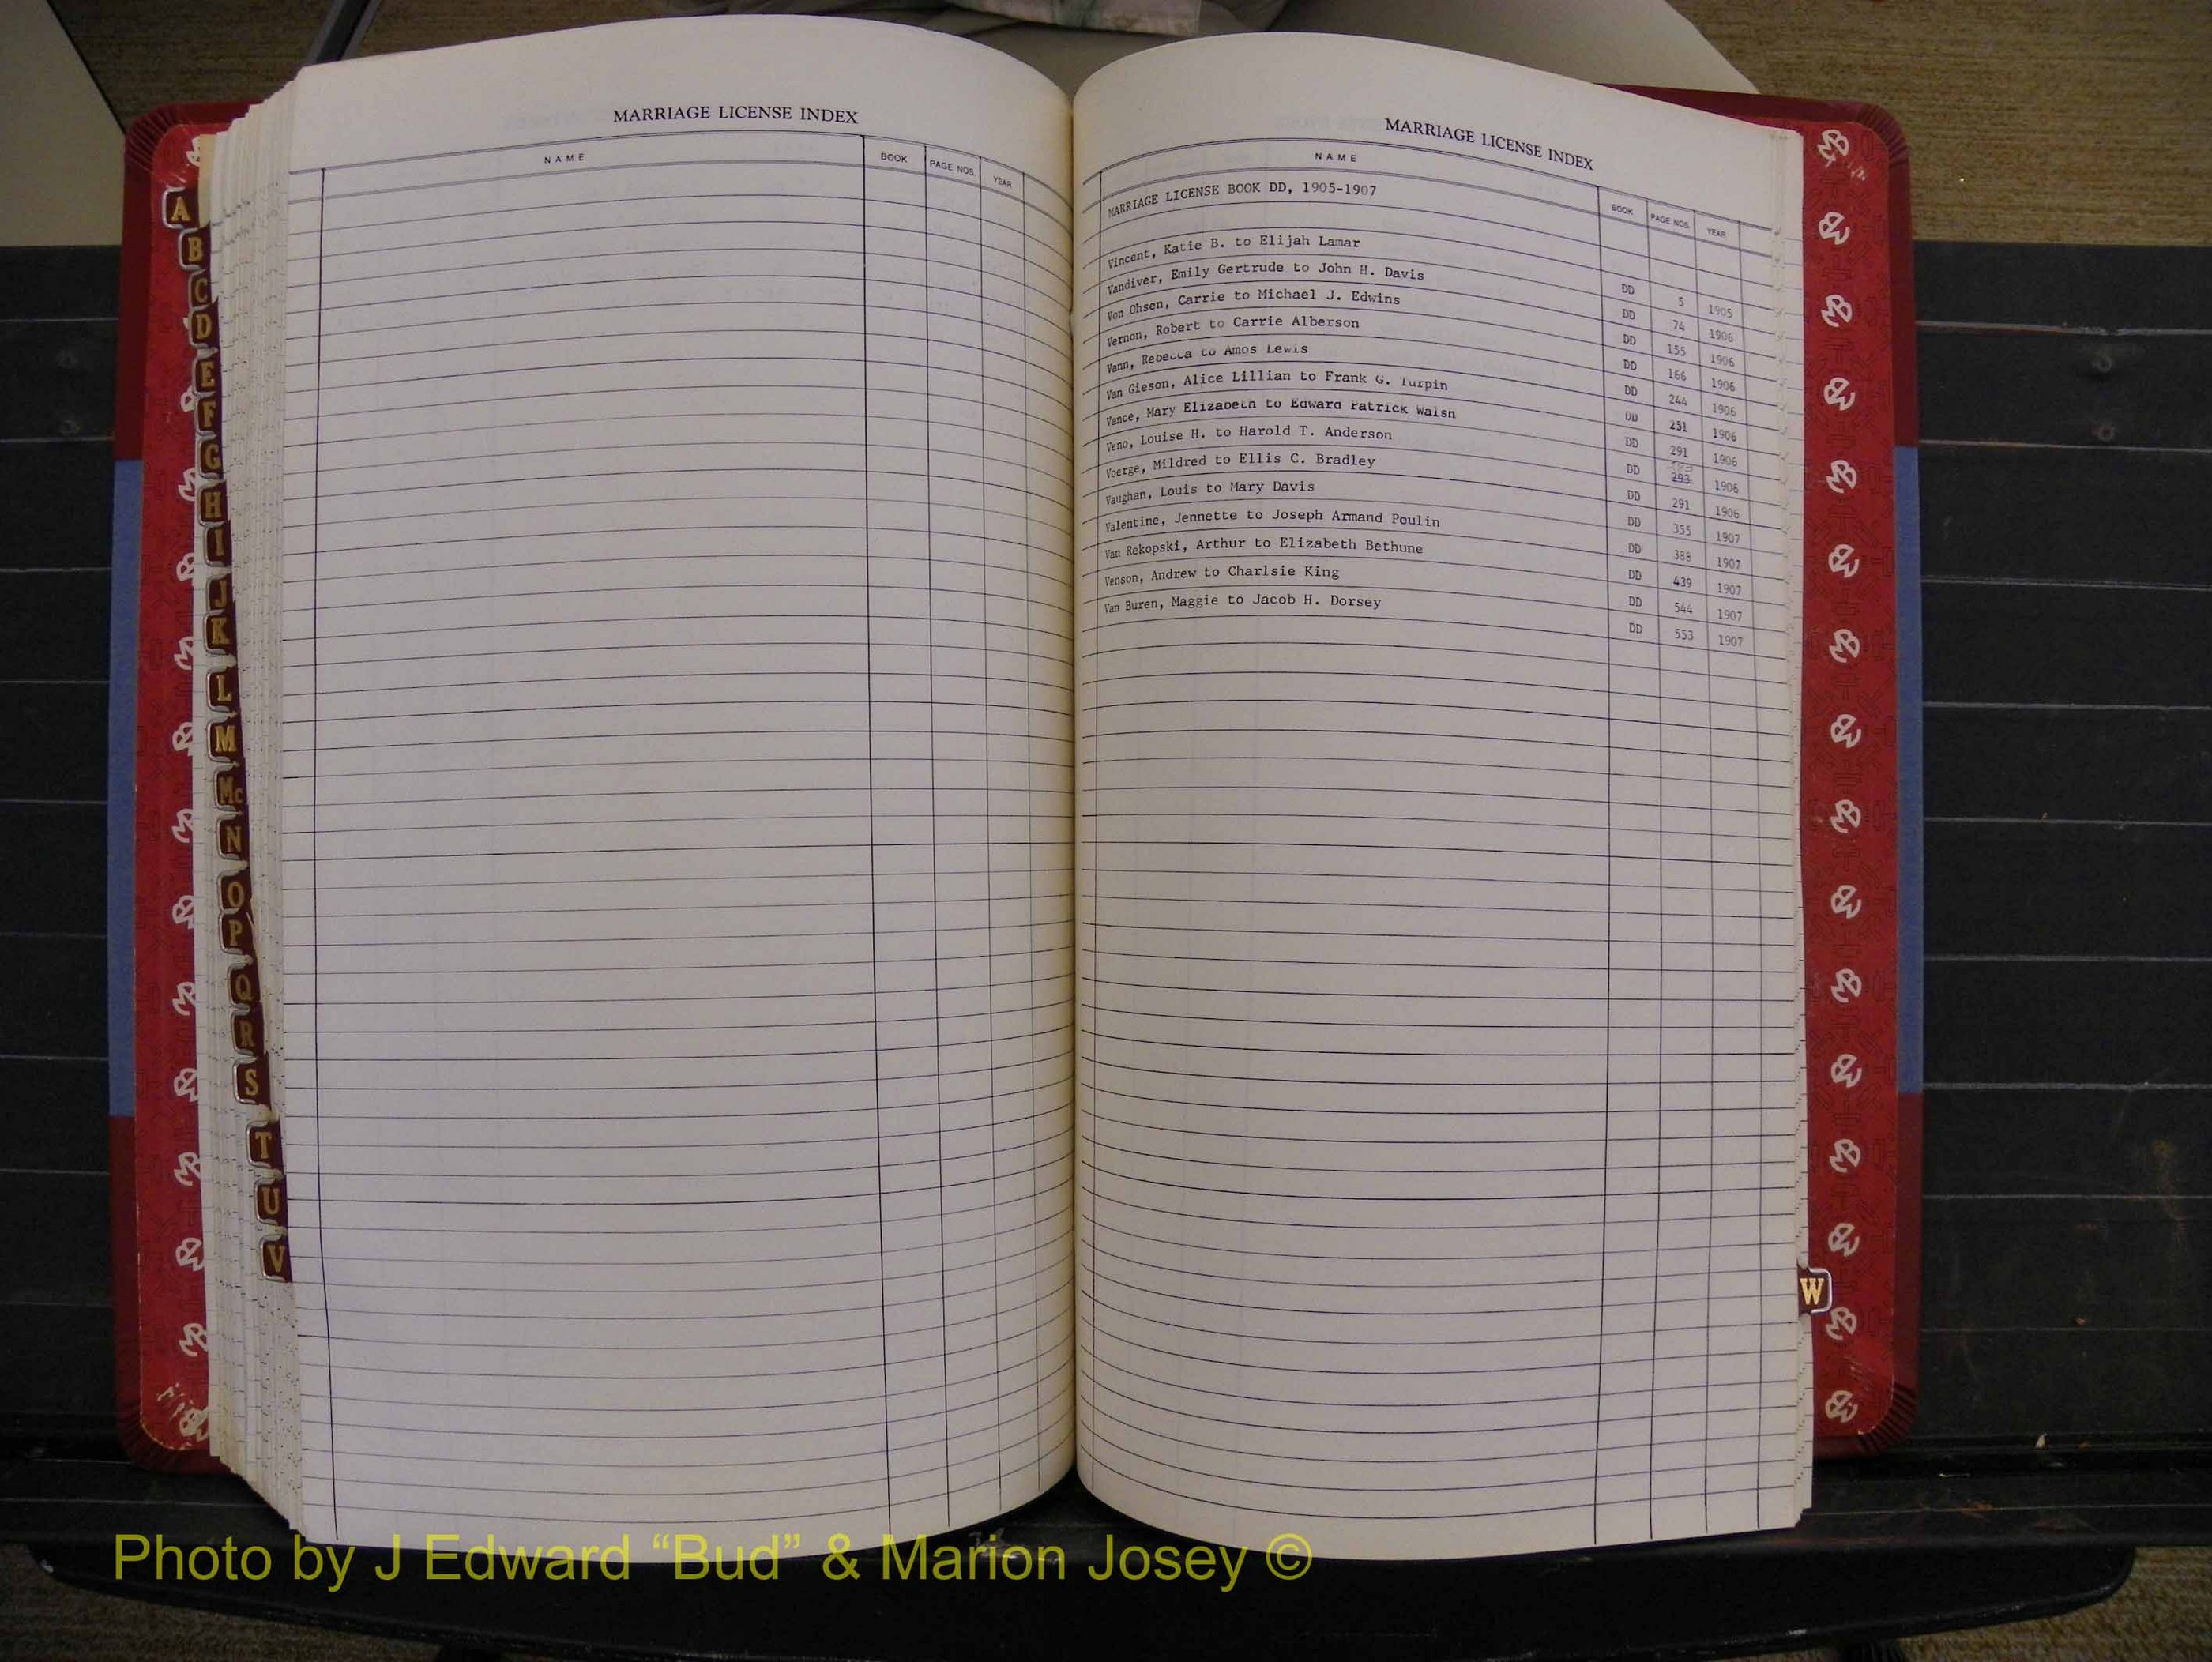 MARRIAGE LICENSE INDEX
NAME BOOK PAGE NOS. YEAR
A
B
C
D
E
F
G
H
I
J
K
L
M
Mc
N
O
P
Q
R
S
T
U
V
MARRIAGE LICENSE INDEX
NAME BOOK PAGE NOS. YEAR
MARRIAGE LICENSE BOOK DD, 1905-1907
Vincent, Katie B. to Elijah Lamar DD 5 1905
Vandiver, Emily Gertrude to John H. Davis DD 74 1906
Von Ohsen, Carrie to Michael J. Edwins DD 155 1906
Vernon, Robert to Carrie Alberson DD 166 1906
Vann, Rebecca to Amos Lewis DD 244 1906
Van Gieson, Alice Lillian to Frank G. Turpin DD 251 1906
Vance, Mary Elizabeth to Edward Patrick Walsh DD 291 1906
Veno, Louise H. to Harold T. Anderson DD 293 1906
Voerge, Mildred to Ellis C. Bradley DD 291 1906
Vaughan, Louis to Mary Davis DD 355 1907
Valentine, Jennette to Joseph Armand Poulin DD 388 1907
Van Rekopski, Arthur to Elizabeth Bethune DD 439 1907
Venson, Andrew to Charlsie King DD 544 1907
Van Buren, Maggie to Jacob H. Dorsey DD 553 1907
W
Photo by J Edward “Bud” & Marion Josey ©